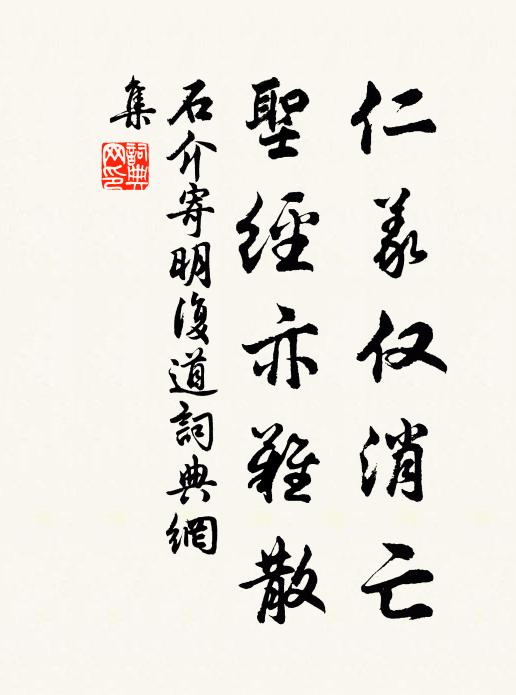 仁义仅消亡
聖經亦難散
石介寄明復道詞典網
集
詞典
网印